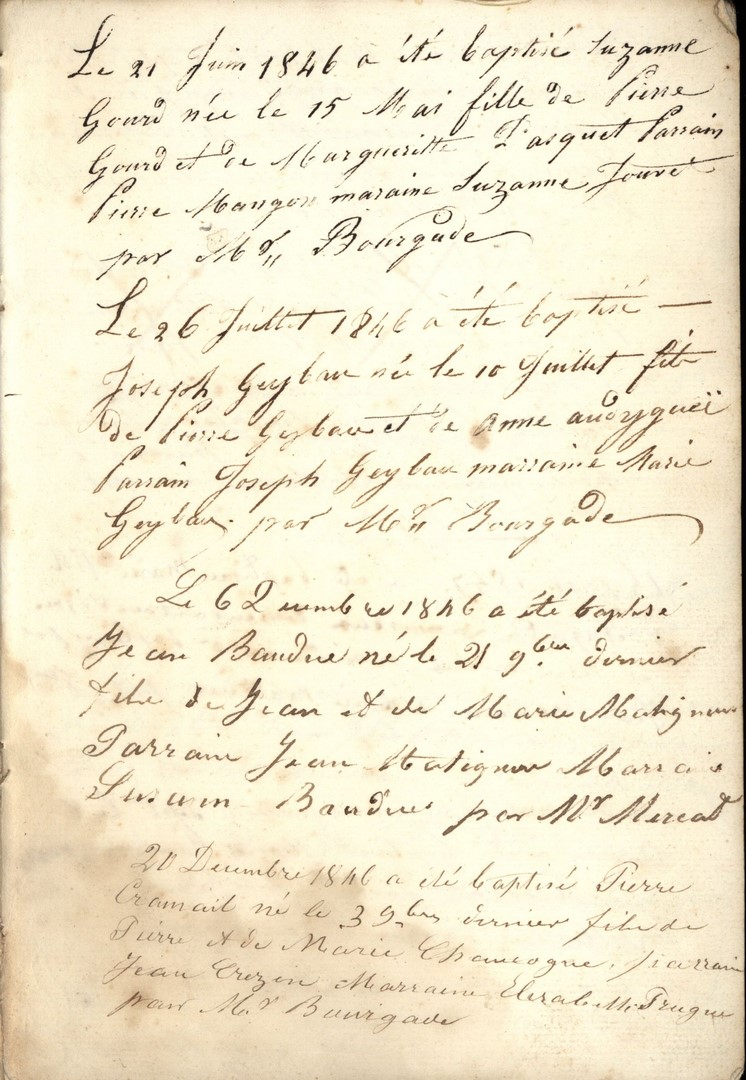 Le 21 Juin 1846 a été baptisé Suzanne
Gourd née le 15 Mai fille de Pierre
Gourd et de Margueritte Pasquet Parrain
Pierre Mangon maraine Suzanne Jouvet
par Mr Bourgade
Le 26 Juillet 1846 a été baptisé —
Joseph Geybau née le 10 Juillet fils
de Pierre Geybau et de Anne
Parrain Joseph Geybau marraine Marie
Geybau par Mr Bourgade
Le 6 Decembre 1846 a été baptisé
Jean Baudue né le 21 9bre dernier
fils de Jean et de Marie
Parrain Jean Matignon
Baudue par Mr Mercat
20 Decembre 1846 a été baptisé Pierre
Cramail né le 3 9bre dernier fils de
Pierre et de Marie Chaucogne, parrain
Jean Crozon Marraine Elizabeth
par Mr Bourgade